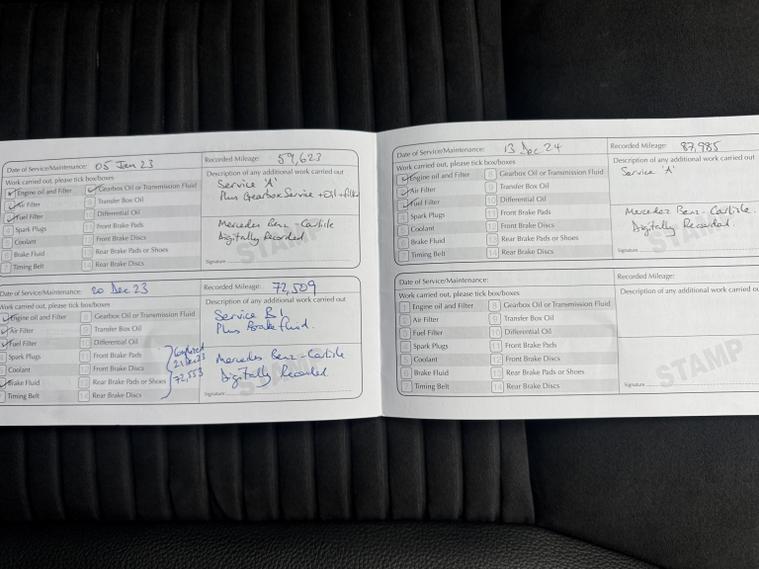 Date of Service/Maintenance: 05 Jan 23
Recorded Mileage: 59,623
Work carried out, please tick box/boxes
Engine oil and Filter
8 Gearbox Oil or Transmission Fluid
Air Filter
9 Transfer Box Oil
Fuel Filter
10 Differential Oil
4 Spark Plugs
11 Front Brake Pads
5 Coolant
12 Front Brake Discs
6 Brake Fluid
13 Rear Brake Pads or Shoes
7 Timing Belt
14 Rear Brake Discs
Description of any additional work carried out
Service 'A'
Plus Gearbox Service + Oil + filter
Mercedes Benz - Carlisle
Digitally Recorded
STAMP
Signature
Date of Service/Maintenance: 20 Dec 23
Recorded Mileage: 72,509
Work carried out, please tick box/boxes
Engine oil and Filter
8 Gearbox Oil or Transmission Fluid
Air Filter
9 Transfer Box Oil
Fuel Filter
10 Differential Oil
Spark Plugs
11 Front Brake Pads
Coolant
12 Front Brake Discs
Brake Fluid
13 Rear Brake Pads or Shoes
Timing Belt
14 Rear Brake Discs
21 Dec 23
72,553
Description of any additional work carried out
Service B1
Plus Brake fluid.
Mercedes Benz - Carlisle
Digitally Recorded
Signature
Date of Service/Maintenance: 13 Dec 24
Recorded Mileage: 87,985
Work carried out, please tick box/boxes
Engine oil and Filter
8 Gearbox Oil or Transmission Fluid
Air Filter
9 Transfer Box Oil
Fuel Filter
10 Differential Oil
4 Spark Plugs
11 Front Brake Pads
5 Coolant
12 Front Brake Discs
6 Brake Fluid
13 Rear Brake Pads or Shoes
7 Timing Belt
14 Rear Brake Discs
Description of any additional work carried out
Service 'A'
Mercedes Benz - Carlisle.
Digitally Recorded.
STAMP
Signature
Date of Service/Maintenance:
Recorded Mileage:
Work carried out, please tick box/boxes
1 Engine oil and Filter
8 Gearbox Oil or Transmission Fluid
2 Air Filter
9 Transfer Box Oil
3 Fuel Filter
10 Differential Oil
4 Spark Plugs
11 Front Brake Pads
5 Coolant
12 Front Brake Discs
6 Brake Fluid
13 Rear Brake Pads or Shoes
7 Timing Belt
14 Rear Brake Discs
Description of any additional work carried out
STAMP
Signature